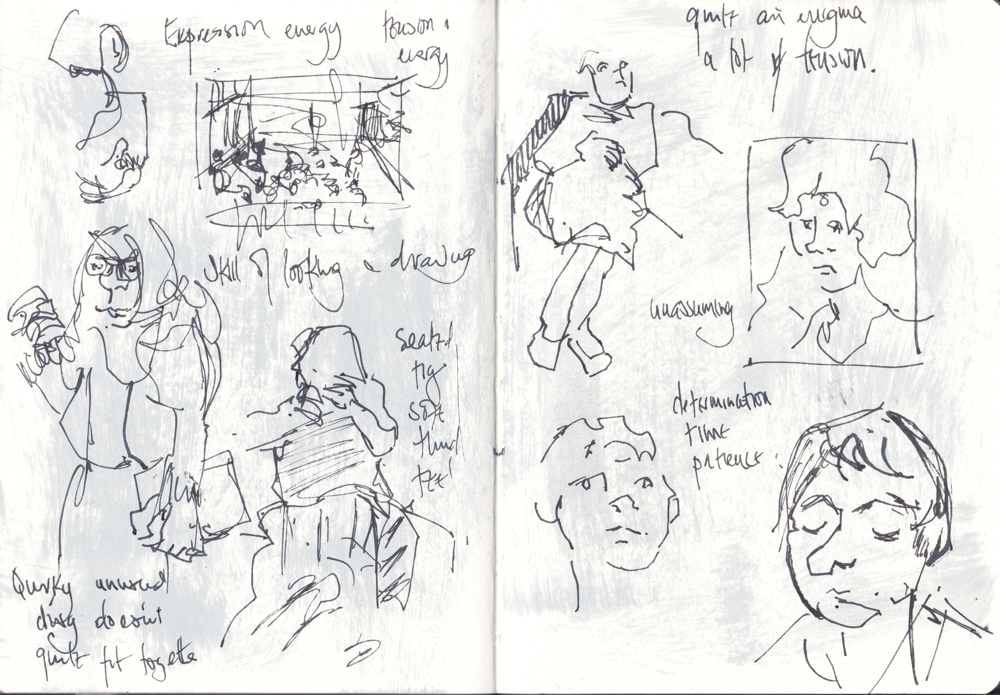 Expression energy
tension &
energy
skill of looking & drawing
seated
soft
Quirky unusual
doesn't
quite fit together
quite an enigma
a lot of tension.
unassuming
determination
time
patience.